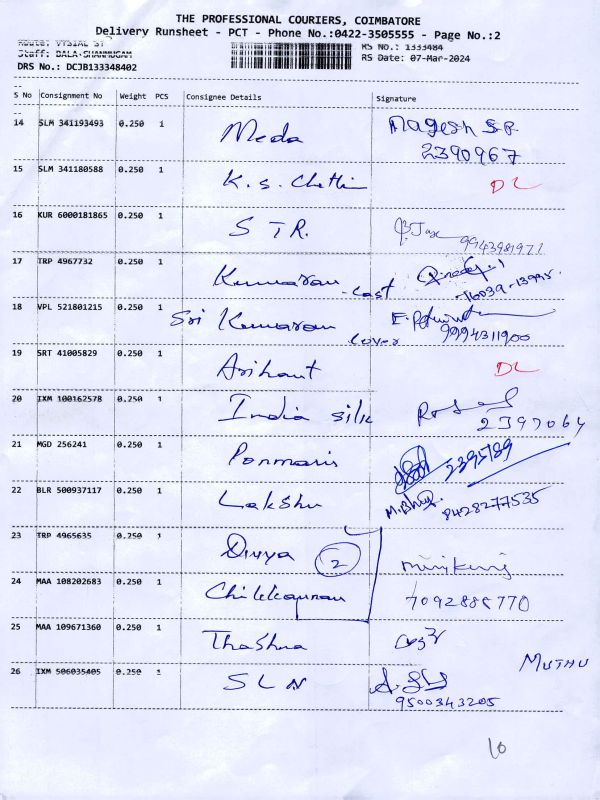 THE PROFESSIONAL COURIERS, COIMBATORE
Delivery Runsheet - PCT - Phone No.:0422-3505555 - Page No.:2
Route: VYSIAL ST
Staff: BALA-SHANMUGAM
RS No.: 1333484
RS Date: 07-Mar-2024
DRS No.: DCJB133348402
S No Consignment No Weight PCS Consignee Details Signature
14 SLM 341193493 0.250 1 Meda Magesh S.P.
2390967
15 SLM 341180588 0.250 1 K.S. Chetti DL
16 KUR 6000181865 0.250 1 STR.
17 TRP 4967732 0.250 1 Kumaran Cast
76039-13995.
18 VPL 521801215 0.250 1 Sri Kumaran cover
9994311900
19 SRT 41005829 0.250 1 Arihant DL
20 IXM 100162578 0.250 1 India silk
2397064
21 MGD 256241 0.250 1 Ponmaris 2395789
22 BLR 500937117 0.250 1 Lakshu 8428277535
23 TRP 4965635 0.250 1 Divya 2
24 MAA 108202683 0.250 1 7092885770
25 MAA 109671360 0.250 1 Thashna
MUTHU
26 IXM 506035405 0.250 1 SLN
9500343205
10